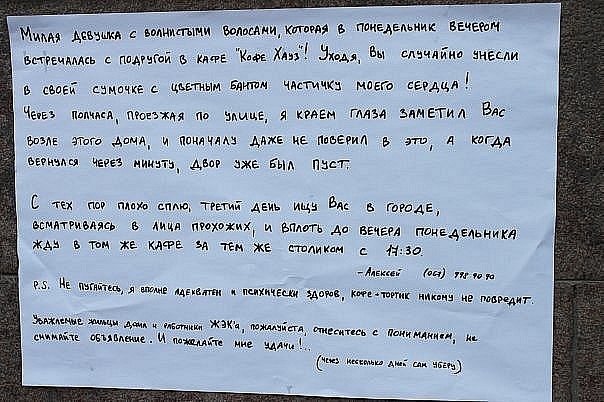 Милая девушка с волнистыми волосами, которая в понедельник вечером
встречалась с подругой в кафе "Кофе Хауз"! Уходя, Вы случайно унесли
в своей сумочке с цветным бантом частичку моего сердца!
Через полчаса, проезжая по улице, я краем глаза заметил Вас
возле этого дома, и поначалу даже не поверил в это, а когда
вернулся через минуту, двор уже был пуст.
С тех пор плохо сплю, третий день ищу Вас в городе,
всматриваясь в лица прохожих, и вплоть до вечера понедельника
жду в том же кафе за тем же столиком с 17:30.
- Алексей (051) 998 90 90
P.S. Не пугайтесь, я вполне адекватен и психически здоров, кофе-тортик никому не повредит.
Уважаемые жильцы дома и работники ЖЭК'а, пожалуйста, отнеситесь с пониманием, не
снимайте объявление. И пожелайте мне удачи!..
(через несколько дней сам уберу)